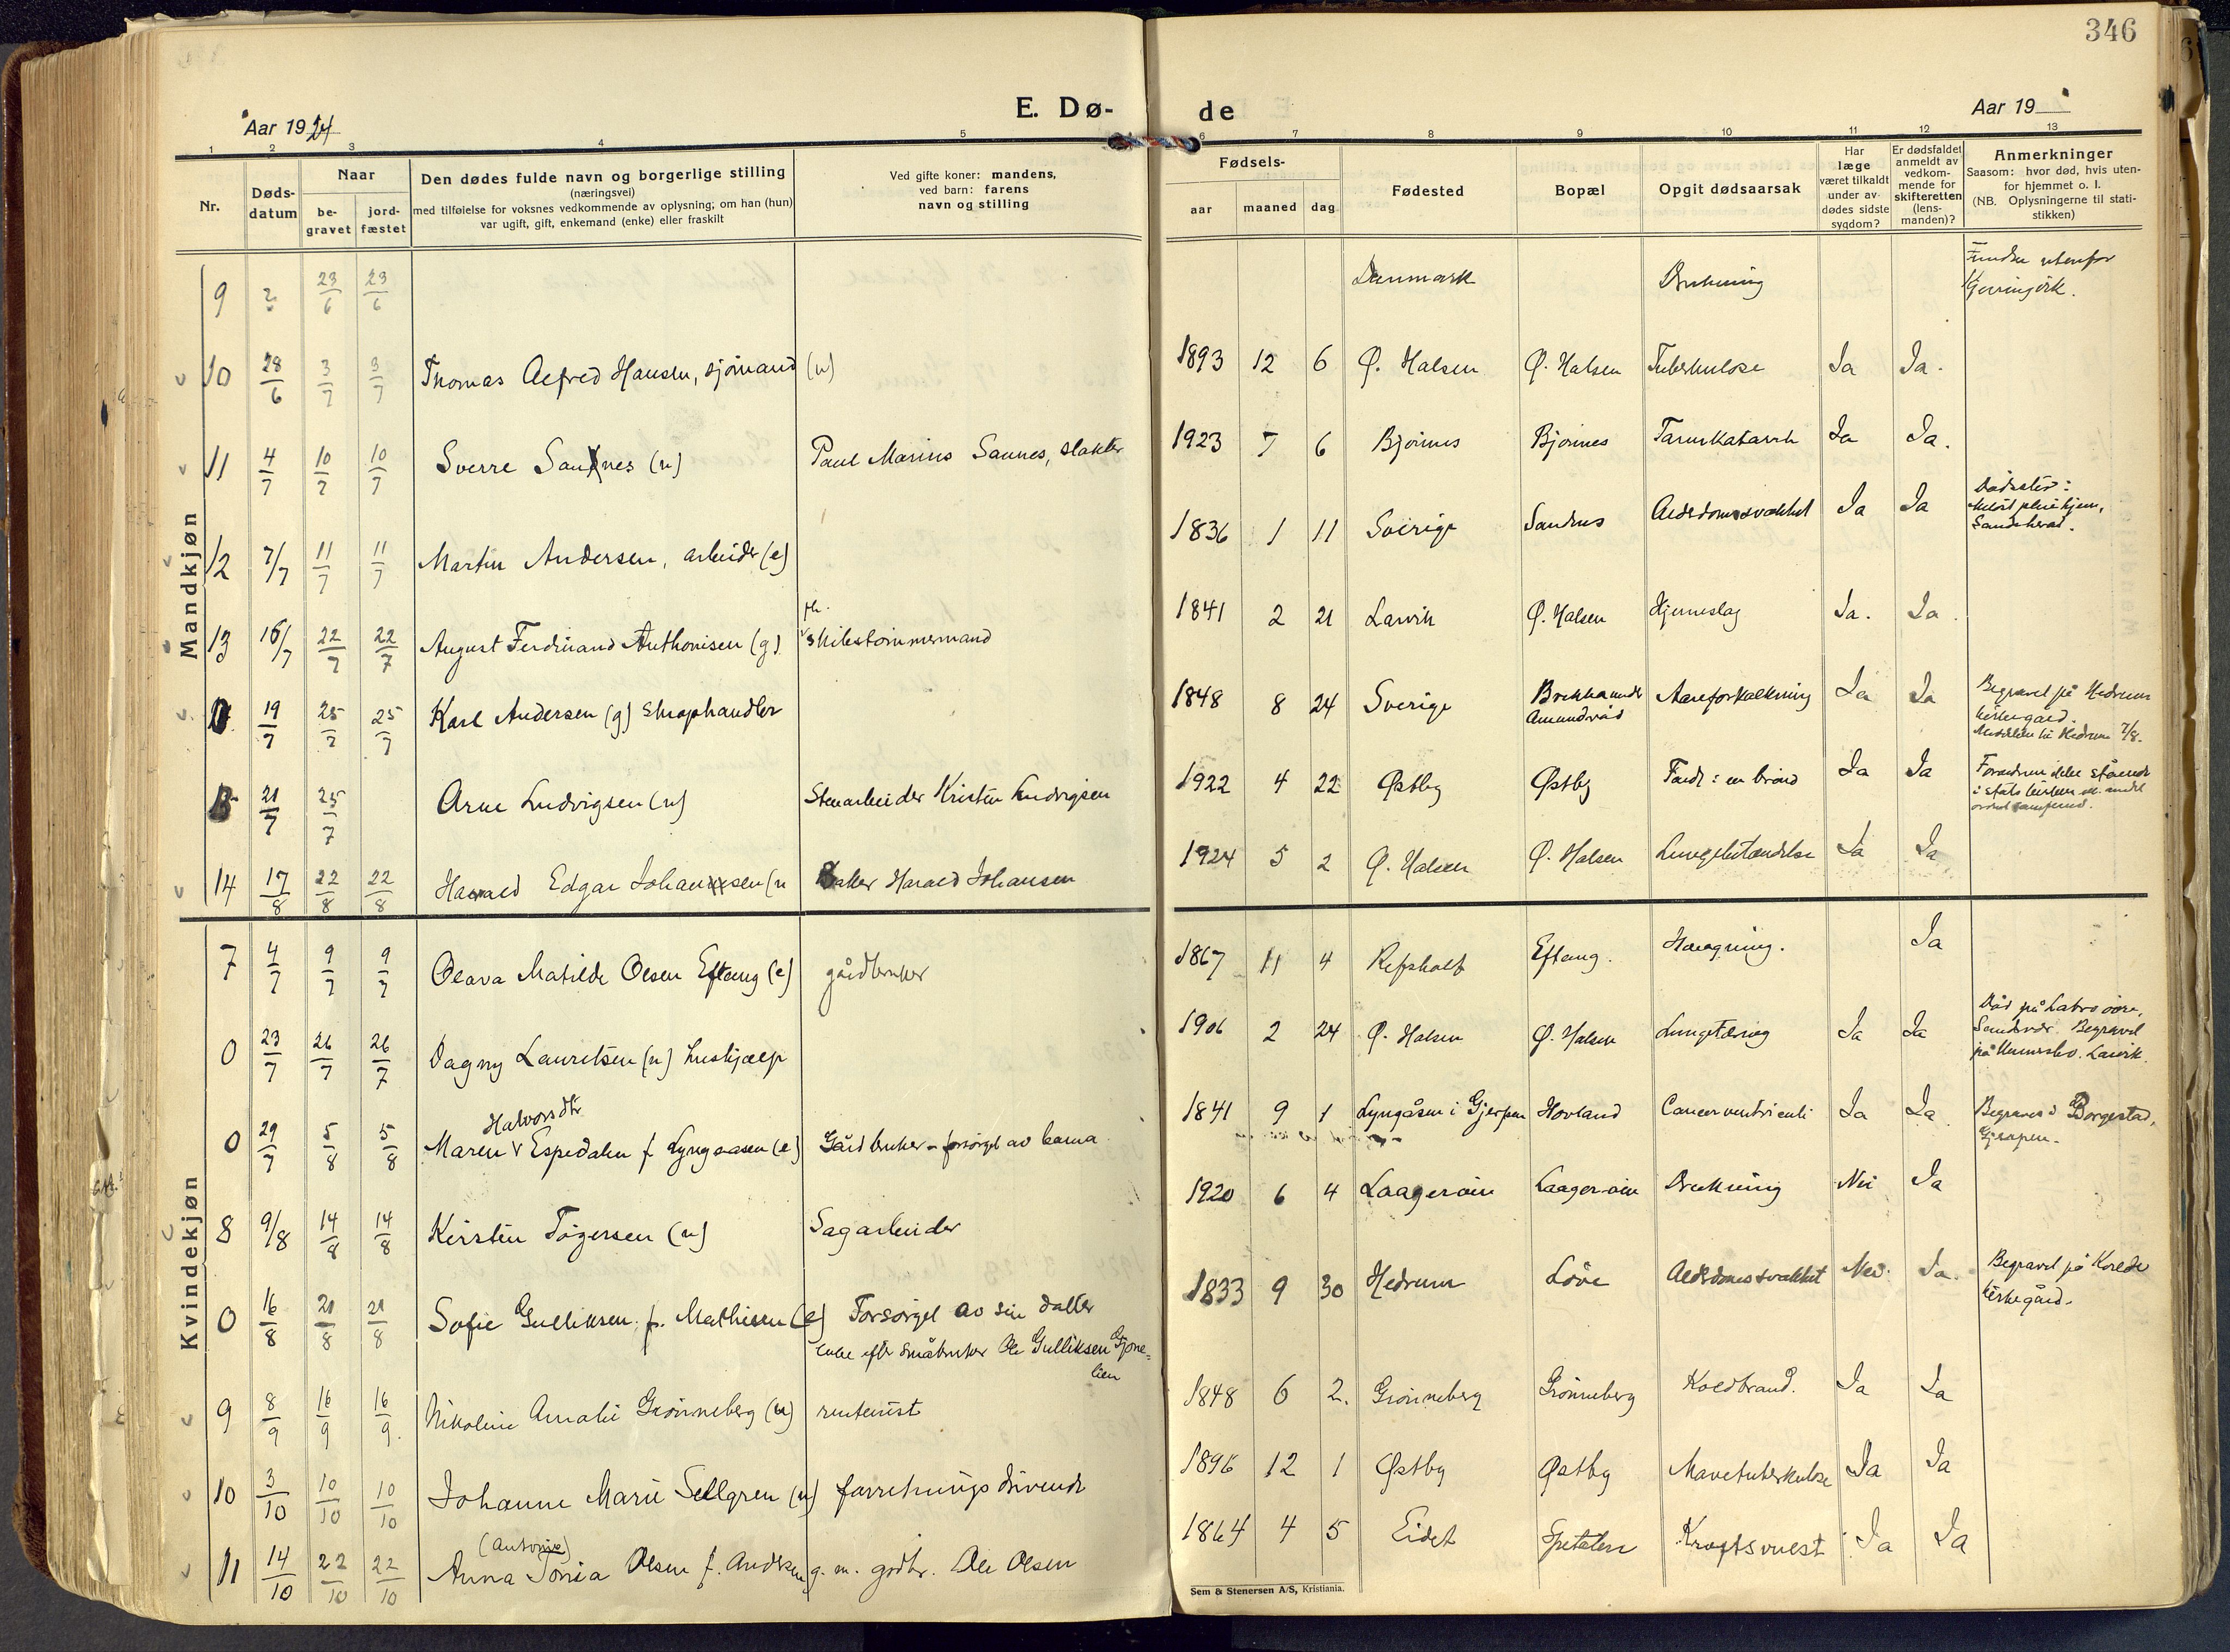 346
Aar 1924
E. Dø-
de
Aar 19
1 2 3 4 5
6 7 8 9 10 11 12 13
Nr.
Døds-
datum
Naar
be-
gravet
jord-
fæstet
Den dødes fulde navn og borgerlige stilling
(næringsvei)
med tilføielse for voksnes vedkommende av oplysning; om han (hun)
var ugift, gift, enkemand (enke) eller fraskilt
Ved gifte koner: mandens,
ved barn: farens
navn og stilling
Fødsels-
aar maaned dag
Fødested
Bopæl
Opgit dødsaarsak
Har
læge
været tilkaldt
under av-
dødes sidste
sygdom?
Er dødsfaldet
anmeldt av
vedkom-
mende for
skifteretten
(lens-
manden)?
Anmerkninger
Saasom: hvor død, hvis uten-
for hjemmet o. l.
(NB. Oplysningerne til stati-
stikken)
Mandkjøn
9 ? 23/6 23/6 Danmark Drukning Funden utenfor
10 28/6 3/7 3/7 Thomas Alfred Hansen, sjömand (u) 1893 12 6 Ø. Halsen Ø. Halsen Tuberkulose Ja Ja.
11 4/7 10/7 10/7 Sverre Sannes (u) Paul Marius Sannes, slakter 1923 7 6 Bjönnes Bjönnes Tarmkatarrh Ja Ja.
12 7/7 11/7 11/7 Martin Andersen, arbeider (e) 1836 1 11 Sverige Sandnes Alderdomssvakhet Ja Ja Dödssted:
pleiehjem,
Sandeherad.
13 16/7 22/7 22/7 August Ferdinand Anthonisen (g) fh. skibstömmermand 1841 2 21 Larvik Ø. Halsen Hjerneslag Ja. Ja.
0 19/7 25/7 25/7 Karl Andersen (g) skraphandler 1848 8 24 Sverige Brekka under
Amundröd Aareforkalkning Ja Ja Begravet på Hedrum
kirkegård.
Meddelelse til Hedrum 7/8.
21/7 25/7 Arne Ludvigsen (u) Stenarbeider Kristen Ludvigsen 1922 4 22 Østby Østby Faldt i en brönd Ja Ja Foreldrene ikke stående
i statskirken
14 17/8 22/8 22/8 Harald Edgar Johansen (u Baker Harald Johansen 1924 5 2 Ø. Halsen Ø. Halsen Lungebetændelse Ja Ja
Kvindekjøn
7 4/7 9/7 9/7 Olava Matilde Olsen Eftang (e) gårdbruker 1867 11 4 Refsholt Eftang. Hængning. Ja
0 23/7 26/7 26/7 Dagny Lauretsen (u) hushjælp 1906 2 24 Ø. Halsen Ø. Halsen Lungetæring Ja Ja Död på Labro övre,
Sandsvær. Begravet
på Larvik.
Halvorsdtr
0 29/7 5/8 5/8 Maren Espedalen f. Lyngaasen (e) Gårdbruker – forsörget av barna. 1841 9 1 Lyngåsen i Gjerpen Hovland Cancer ventriculi Ja Ja Begraves i Borgestad,
Gjerpen.
8 9/8 14/8 14/8 Kirsten Tögersen (u) Sagarbeider 1920 6 4 Laageröien Laageröien Drukning Nei Ja
0 16/8 21/8 21/8 Sofie Gulliksen f. Mathisen (e) Forsörget av sin datter
enke efter småbruker Ole Gulliksen Gjone-
lien 1833 9 30 Hedrum Löve Alderdomssvakhet Nei Ja. Begravet på Kvelde
kirkegård.
9 8/9 16/9 16/9 Nikoline Amalie Grönneberg (u) rentenist 1848 6 2. Grönneberg Grönneberg Koldbrand. Ja Ja
10 3/10 10/10 10/10 Johanne Marie Sellgren (u) forretningsdrivende 1896 12 1 Østby Østby Mavetuberkulose Ja Ja
(Antonie)
11 14/10 22/10 22/10 Anna Tonia Olsen f. Andersen g. m. gdbr. Ole Olsen 1864 4 5 Eidet Spetalen Kræftsvulst Ja Ja
Sem & Stenersen A/S, Kristiania.